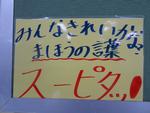 みんなきれいかな？
まほうの言葉
スーピタッ！